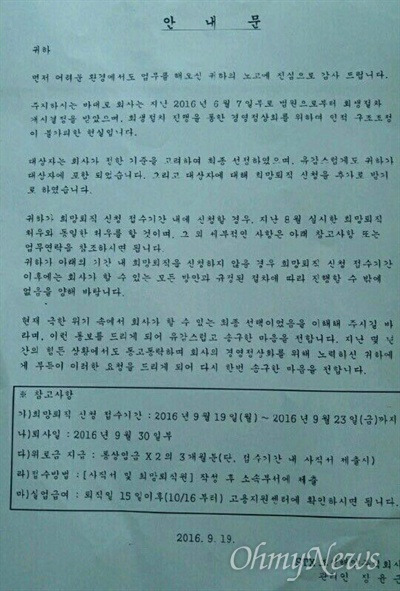 안 내 문
귀하
먼저 어려운 환경에서도 업무를 해오신 귀하의 노고에 진심으로 감사 드립니다.
주지하시는 바대로 회사는 지난 2016년 6월 7일부로 법원으로부터 회생절차
개시결정을 받았으며, 회생절차 진행을 통한 경영정상화를 위하여 인적 구조조정
이 불가피한 현실입니다.
대상자는 회사가 정한 기준을 고려하여 최종 선정하였으며, 유감스럽게도 귀하가
대상자에 포함 되었습니다. 그리고 대상자에 대해 희망퇴직 신청을 추가로 받기
로 하였습니다.
귀하가 희망퇴직 신청 접수기간 내에 신청할 경우, 지난 8월 실시한 희망퇴직
처우와 동일한 처우를 할 것이며, 그 외 세부적인 사항은 아래 참고사항 또는
업무연락을 참조하시면 됩니다.
귀하가 아래의 기간 내 희망퇴직을 신청하지 않을 경우 희망퇴직 신청 접수기간
이후에는 회사가 할 수 있는 모든 방안과 규정된 절차에 따라 진행할 수 밖에
없음을 양해 바랍니다.
현재 극한 위기 속에서 회사가 할 수 있는 최종 선택이었음을 이해해 주시길 바
라며, 이런 통보를 드리게 되어 유감스럽고 송구한 마음을 전합니다. 지난 몇 년
간의 힘든 상황에서도 동고동락하며 회사의 경영정상화를 위해 노력하신 귀하에
게 부득이 이러한 요청을 드리게 되어 다시 한번 송구한 마음을 전합니다.
※ 참고사항
가)희망퇴직 신청 접수기간 : 2016년 9월 19일(월) ~ 2016년 9월 23일(금)까지
나)퇴사일 : 2016년 9월 30일부
다)위로금 지급 : 통상임금 X 2의 3개월분(단, 접수기간 내 사직서 제출시)
라)접수방법 : [사직서 및 희망퇴직원] 작성 후 소속부서에 제출
마)실업급여 : 퇴직일 15일이후(10/16부터) 고용지원센터에 확인하시면 됩니다.
2016. 9. 19.
관리인
OhmyNews